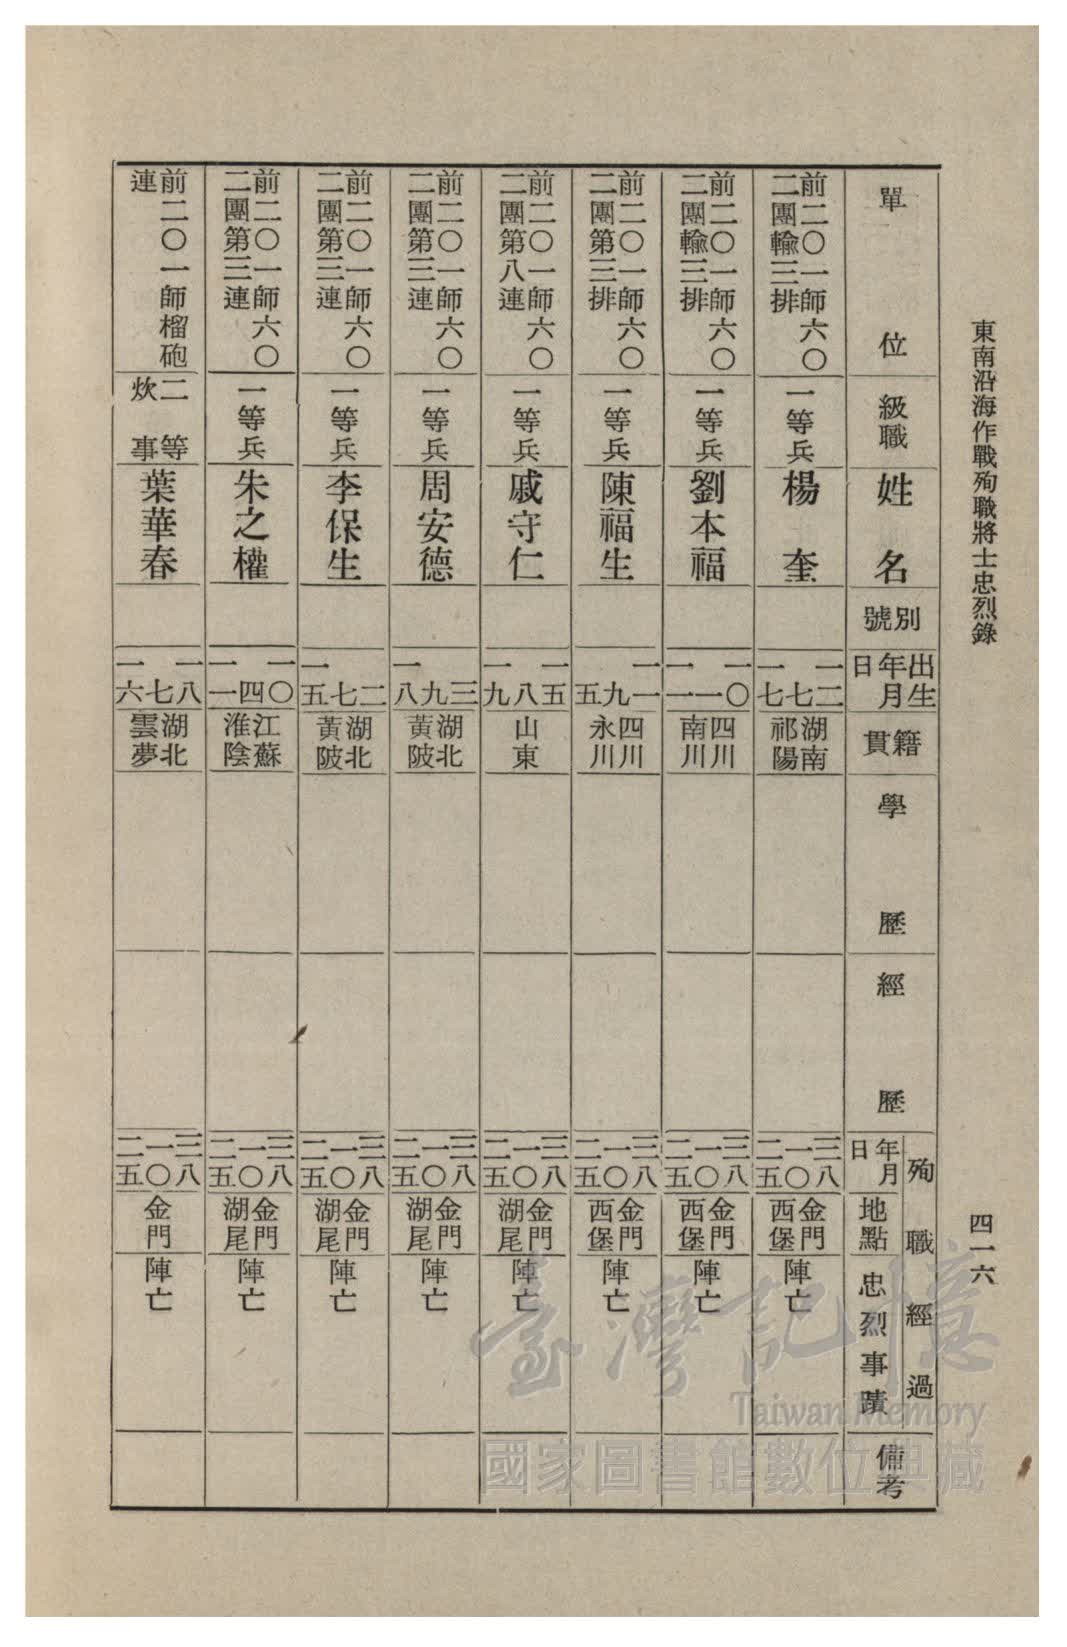 東南沿海作戰殉職將士忠烈錄
四一六
單位
級職
姓名
別號
出生
年月
日
籍貫
學歷
經歷
殉職經過
年月
日
地點
忠烈事蹟
備考
前二〇一師六〇
二團輸三排
一等兵
楊奎
一二
七
一七
湖南
祁陽
三八
一〇
二五
金門
西堡
陣亡
前二〇一師六〇
二團輸三排
一等兵
劉本福
一〇
一
一一
四川
南川
三八
一〇
二五
金門
西堡
陣亡
前二〇一師六〇
二團第三排
一等兵
陳福生
一一
九
五
四川
永川
三八
一〇
二五
金門
西堡
陣亡
前二〇一師六〇
二團第八連
一等兵
戚守仁
一五
八
一九
山東
三八
一〇
二五
金門
湖尾
陣亡
前二〇一師六〇
二團第三連
一等兵
周安德
三
九
一八
湖北
黃陂
三八
一〇
二五
金門
湖尾
陣亡
前二〇一師六〇
二團第三連
一等兵
李保生
二
七
一五
湖北
黃陂
三八
一〇
二五
金門
湖尾
陣亡
前二〇一師六〇
二團第三連
一等兵
朱之權
一〇
四
一一
江蘇
淮陰
三八
一〇
二五
金門
湖尾
陣亡
前二〇一師榴砲
連
二等
炊事
葉華春
一八
七
一六
湖北
雲夢
三八
一〇
二五
金門
陣亡
臺灣記憶
Taiwan Memory
國家圖書館數位典藏